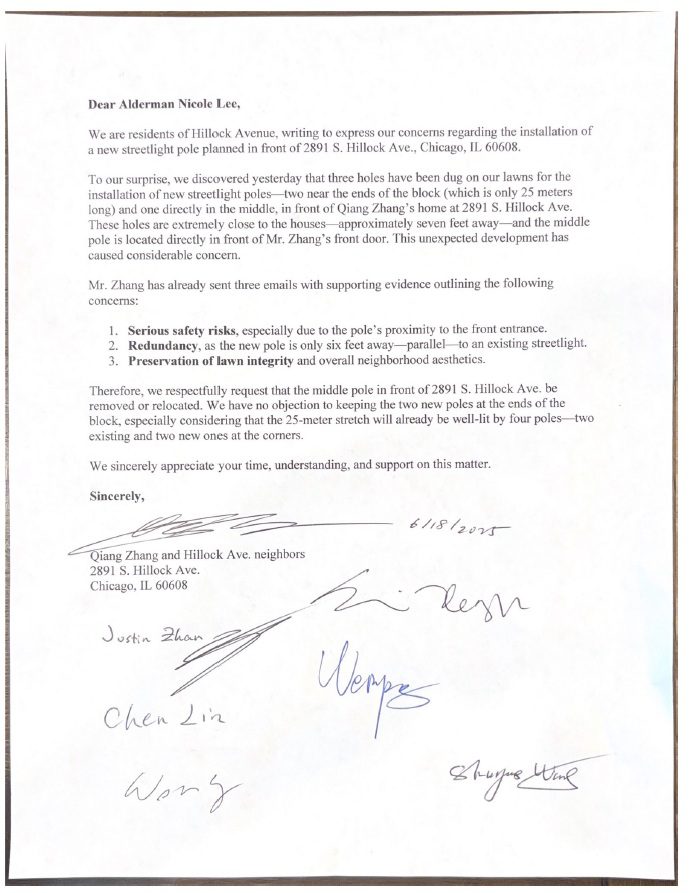 Dear Alderman Nicole Lee,
We are residents of Hillock Avenue, writing to express our concerns regarding the installation of
a new streetlight pole planned in front of 2891 S. Hillock Ave., Chicago, IL 60608.
To our surprise, we discovered yesterday that three holes have been dug on our lawns for the
installation of new streetlight poles—two near the ends of the block (which is only 25 meters
long) and one directly in the middle, in front of Qiang Zhang’s home at 2891 S. Hillock Ave.
These holes are extremely close to the houses—approximately seven feet away—and the middle
pole is located directly in front of Mr. Zhang’s front door. This unexpected development has
caused considerable concern.
Mr. Zhang has already sent three emails with supporting evidence outlining the following
concerns:
1. Serious safety risks, especially due to the pole’s proximity to the front entrance.
2. Redundancy, as the new pole is only six feet away—parallel—to an existing streetlight.
3. Preservation of lawn integrity and overall neighborhood aesthetics.
Therefore, we respectfully request that the middle pole in front of 2891 S. Hillock Ave. be
removed or relocated. We have no objection to keeping the two new poles at the ends of the
block, especially considering that the 25-meter stretch will already be well-lit by four poles—two
existing and two new ones at the corners.
We sincerely appreciate your time, understanding, and support on this matter.
Sincerely,
6/18/2025
Qiang Zhang and Hillock Ave. neighbors
2891 S. Hillock Ave.
Chicago, IL 60608
Justin Zhan
Chen Lin